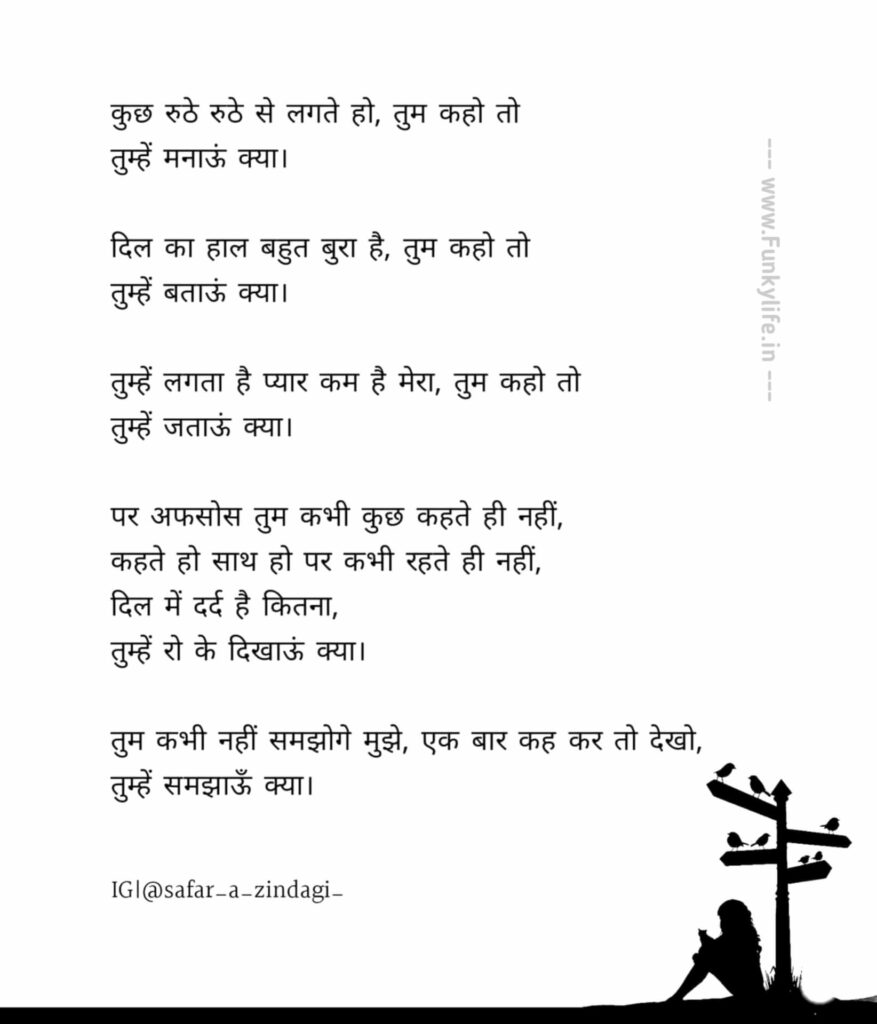 कुछ रुठे रुठे से लगते हो, तुम कहो तो
तुम्हें मनाऊं क्या।
दिल का हाल बहुत बुरा है, तुम कहो तो
तुम्हें बताऊं क्या।
तुम्हें लगता है प्यार कम है मेरा, तुम कहो तो
तुम्हें जताऊं क्या।
पर अफसोस तुम कभी कुछ कहते ही नहीं,
कहते हो साथ हो पर कभी रहते ही नहीं,
दिल में दर्द है कितना,
तुम्हें रो के दिखाऊं क्या।
तुम कभी नहीं समझोगे मुझे, एक बार कह कर तो देखो,
तुम्हें समझाऊँ क्या।
IG|@safar_a_zindagi_
--- www.Funkylife.in ---